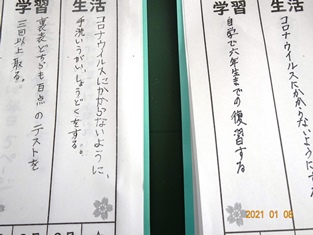 学習
生活
コロナウイルスにかからないように、
手洗いうがい、しょうどくをする。
裏表どちらも百点のテストを
三回以上取る。
学習
生活
コロナウイルスにかからないようにする
自学で六年生までの復習する
2021 01 08